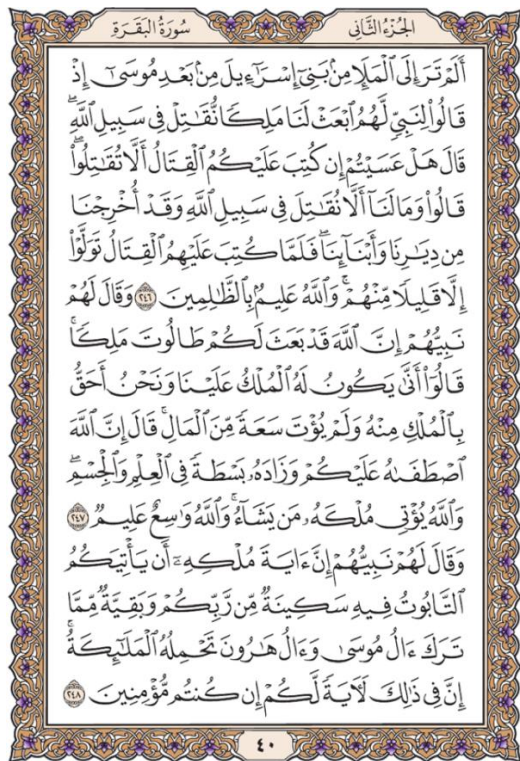 الجُزْءُ الثَّانِي
سُورَةُ البَقَرَةِ
أَلَمْ تَرَ إِلَى ٱلْمَلَإِ مِنۢ بَنِىٓ إِسْرَٰٓءِيلَ مِنۢ بَعْدِ مُوسَىٰٓ إِذْ
قَالُوا۟ لِنَبِىٍّ لَّهُمُ ٱبْعَثْ لَنَا مَلِكًا نُّقَٰتِلْ فِى سَبِيلِ ٱللَّهِۖ
قَالَ هَلْ عَسَيْتُمْ إِن كُتِبَ عَلَيْكُمُ ٱلْقِتَالُ أَلَّا تُقَٰتِلُوا۟ۖ
قَالُوا۟ وَمَا لَنَآ أَلَّا نُقَٰتِلَ فِى سَبِيلِ ٱللَّهِ وَقَدْ أُخْرِجْنَا
مِن دِيَٰرِنَا وَأَبْنَآئِنَاۖ فَلَمَّا كُتِبَ عَلَيْهِمُ ٱلْقِتَالُ تَوَلَّوْا۟
إِلَّا قَلِيلًا مِّنْهُمْۗ وَٱللَّهُ عَلِيمٌۢ بِٱلظَّٰلِمِينَ ٢٤٦ وَقَالَ لَهُمْ
نَبِيُّهُمْ إِنَّ ٱللَّهَ قَدْ بَعَثَ لَكُمْ طَالُوتَ مَلِكًاۚ
قَالُوٓا۟ أَنَّىٰ يَكُونُ لَهُ ٱلْمُلْكُ عَلَيْنَا وَنَحْنُ أَحَقُّ
بِٱلْمُلْكِ مِنْهُ وَلَمْ يُؤْتَ سَعَةً مِّنَ ٱلْمَالِۚ قَالَ إِنَّ ٱللَّهَ
ٱصْطَفَىٰهُ عَلَيْكُمْ وَزَادَهُۥ بَسْطَةً فِى ٱلْعِلْمِ وَٱلْجِسْمِۖ
وَٱللَّهُ يُؤْتِى مُلْكَهُۥ مَن يَشَآءُۚ وَٱللَّهُ وَٰسِعٌ عَلِيمٌ ٢٤٧
وَقَالَ لَهُمْ نَبِيُّهُمْ إِنَّ ءَايَةَ مُلْكِهِۦٓ أَن يَأْتِيَكُمُ
ٱلتَّابُوتُ فِيهِ سَكِينَةٌ مِّن رَّبِّكُمْ وَبَقِيَّةٌ مِّمَّا
تَرَكَ ءَالُ مُوسَىٰ وَءَالُ هَٰرُونَ تَحْمِلُهُ ٱلْمَلَٰٓئِكَةُۚ
إِنَّ فِى ذَٰلِكَ لَءَايَةً لَّكُمْ إِن كُنتُم مُّؤْمِنِينَ ٢٤٨
٤٠